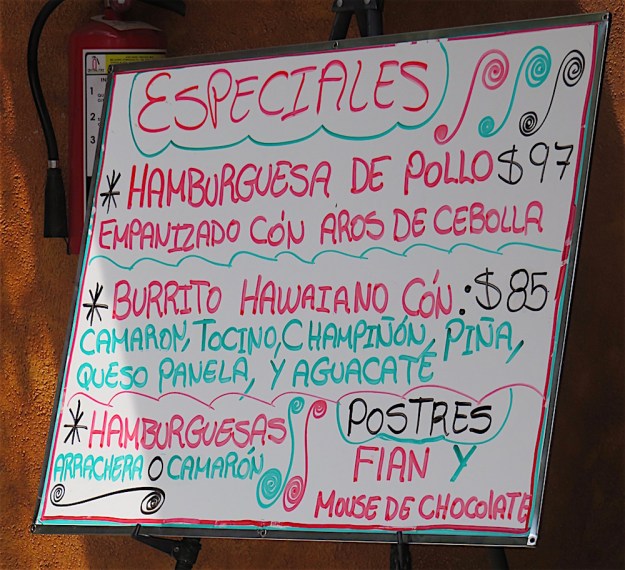 ESPECIALES
* HAMBURGUESA DE POLLO $97
EMPANIZADO CÓN AROS DE CEBOLLA
* BURRITO HAWAIANO CÓN: $85
CAMARON, TOCINO, CHAMPIÑÓN, PIÑA,
QUESO PANELA, Y AGUACATÉ
* HAMBURGUESAS
ARRACHERA O CAMARÓN
POSTRES
FIAN Y
MOUSE DE CHOCOlATE